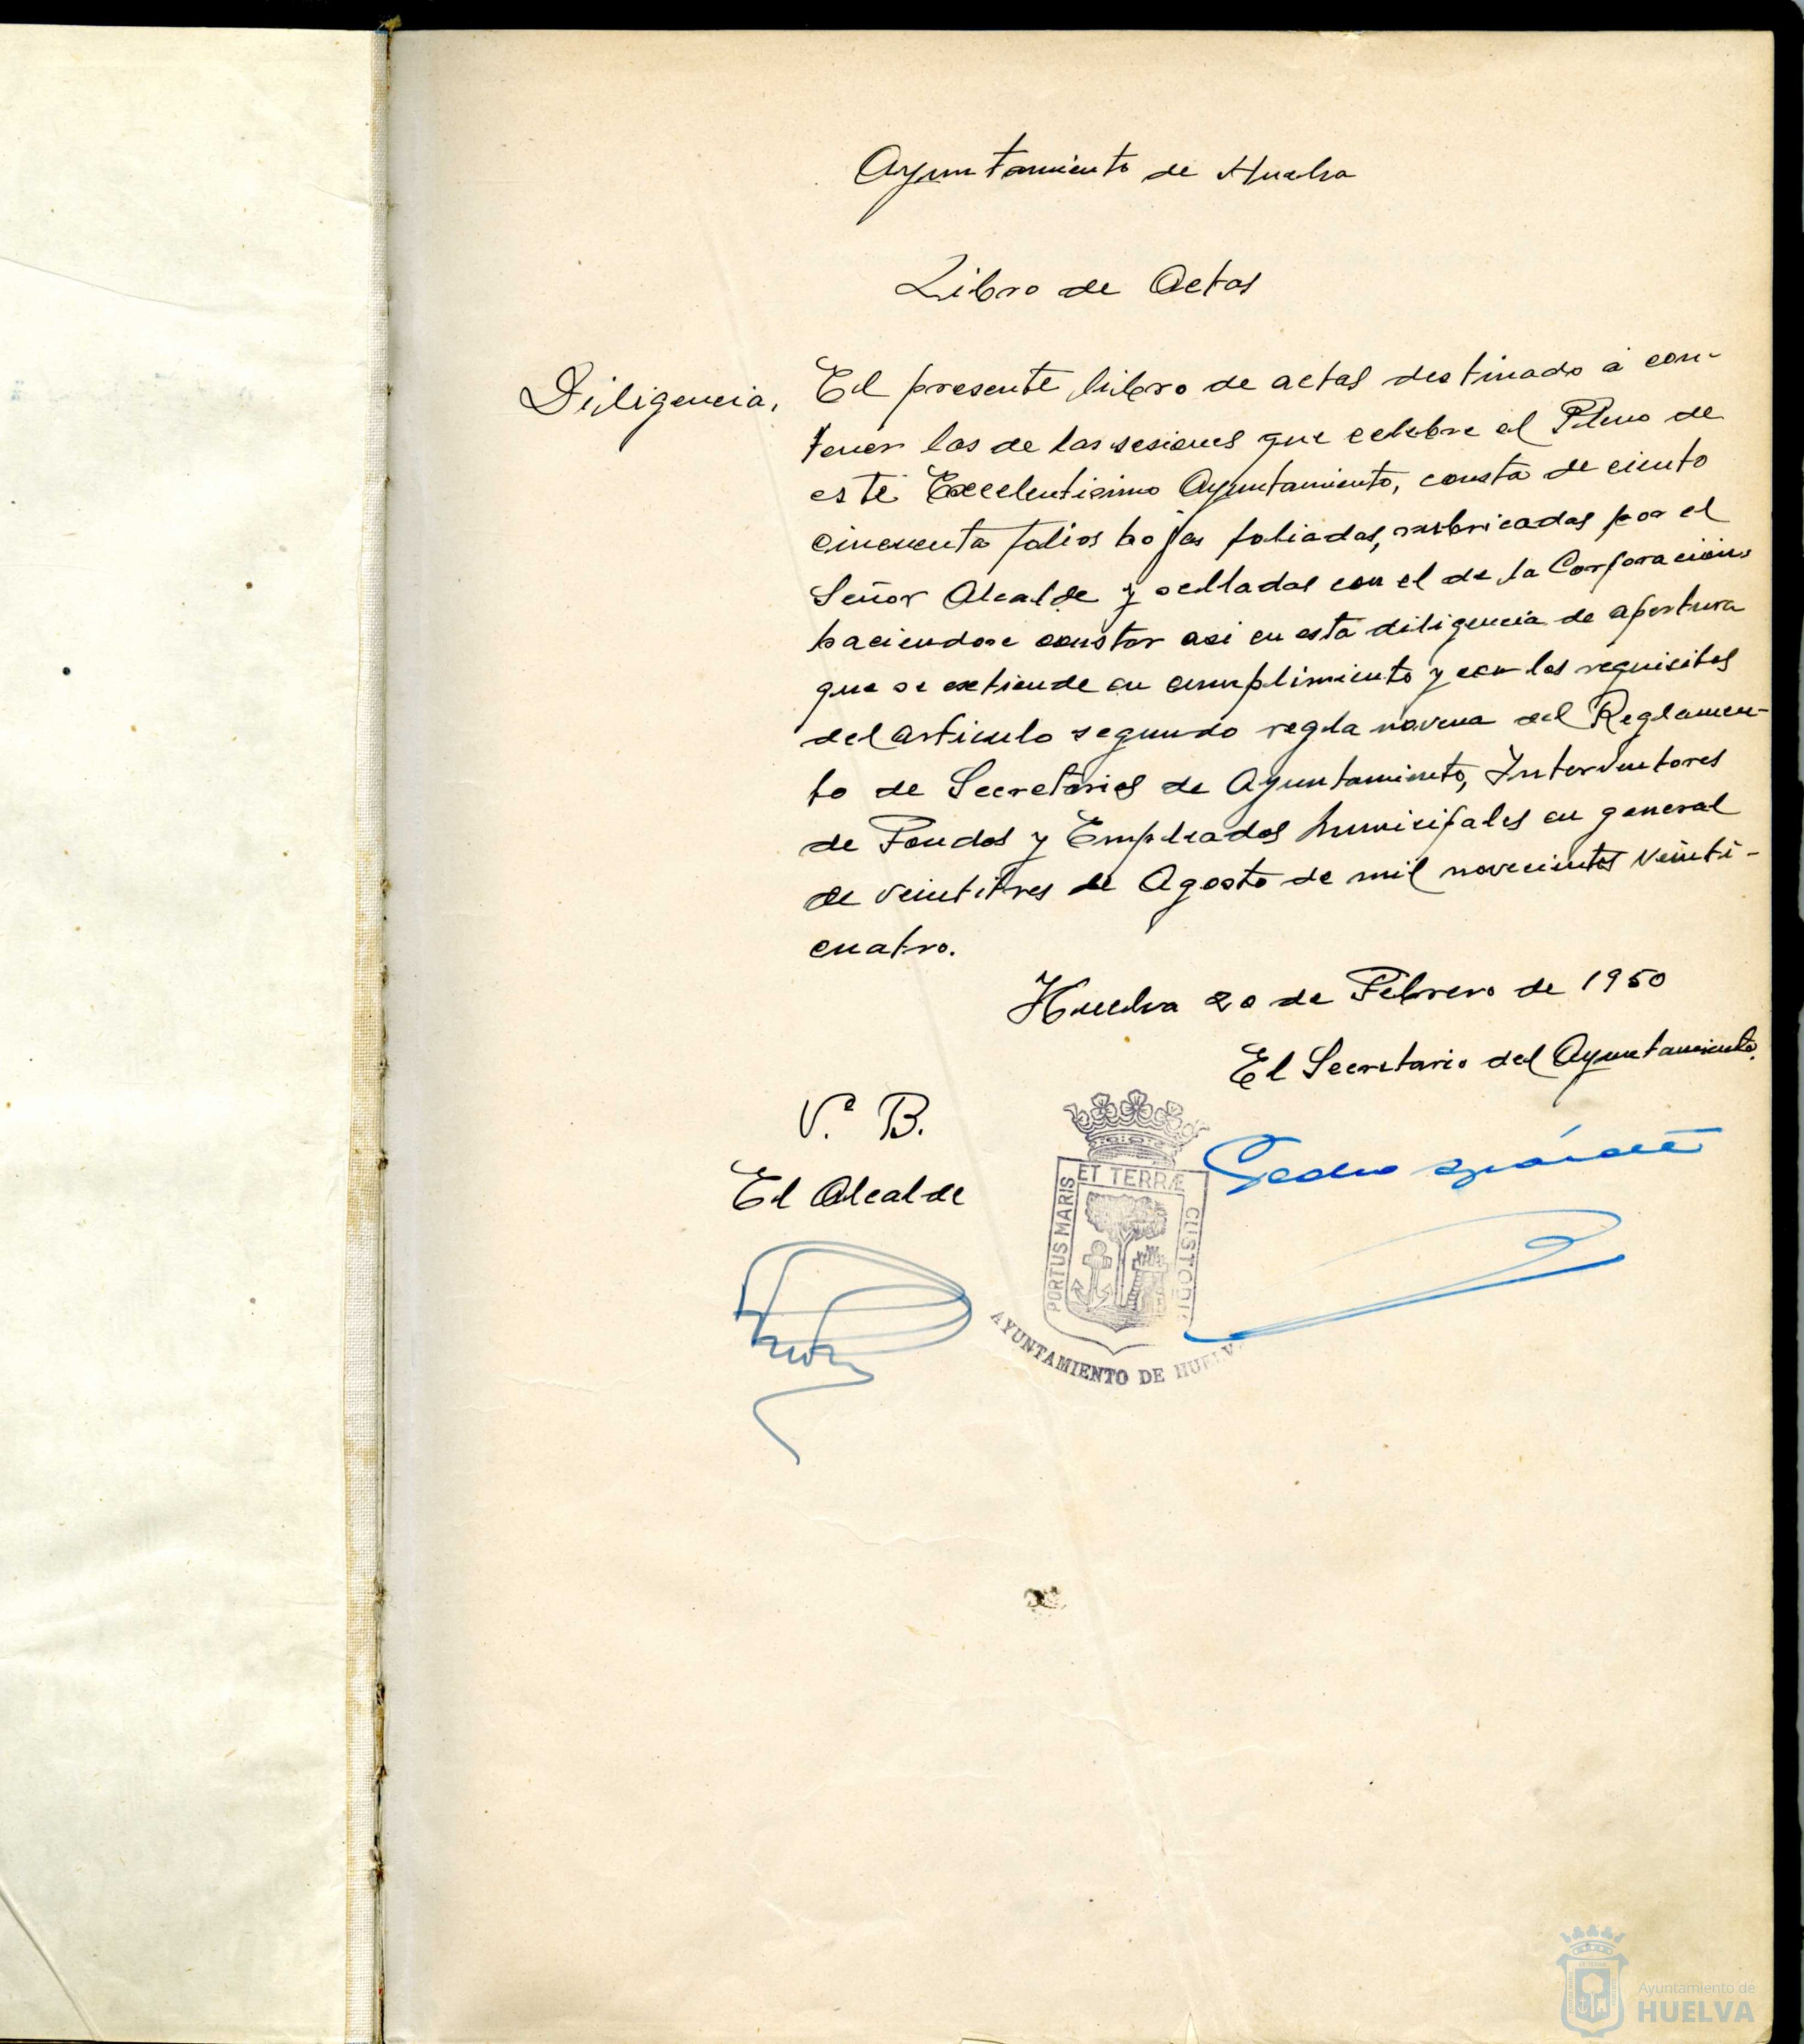 Ayuntamiento de Huelva
Libro de Actas
Diligencia,
El presente libro de actas destinado á con-
tener las de las sesiones que celebre el Pleno de
este Excelentisimo Ayuntamiento, consta de ciento
cincuenta folios hojas foliadas, rubricadas por el
Señor Alcalde y selladas con el de la Corporación,
haciendose constar asi en esta diligencia de apertura
que se extiende en cumplimiento y con los requisitos
del articulo segundo regla novena del Reglamen-
to de Secretarios de Ayuntamiento, Interventores
de Fondos y Empleados Municipales en general
de veintitres de Agosto de mil novecientos veinti-
cuatro.
Huelva 20 de Febrero de 1950
El Secretario del Ayuntamiento.
V.º B.
El Alcalde
Pedro
PORTUS MARIS ET TERRÆ CUSTODIA
AYUNTAMIENTO DE HUELVA
Ayuntamiento de
HUELVA